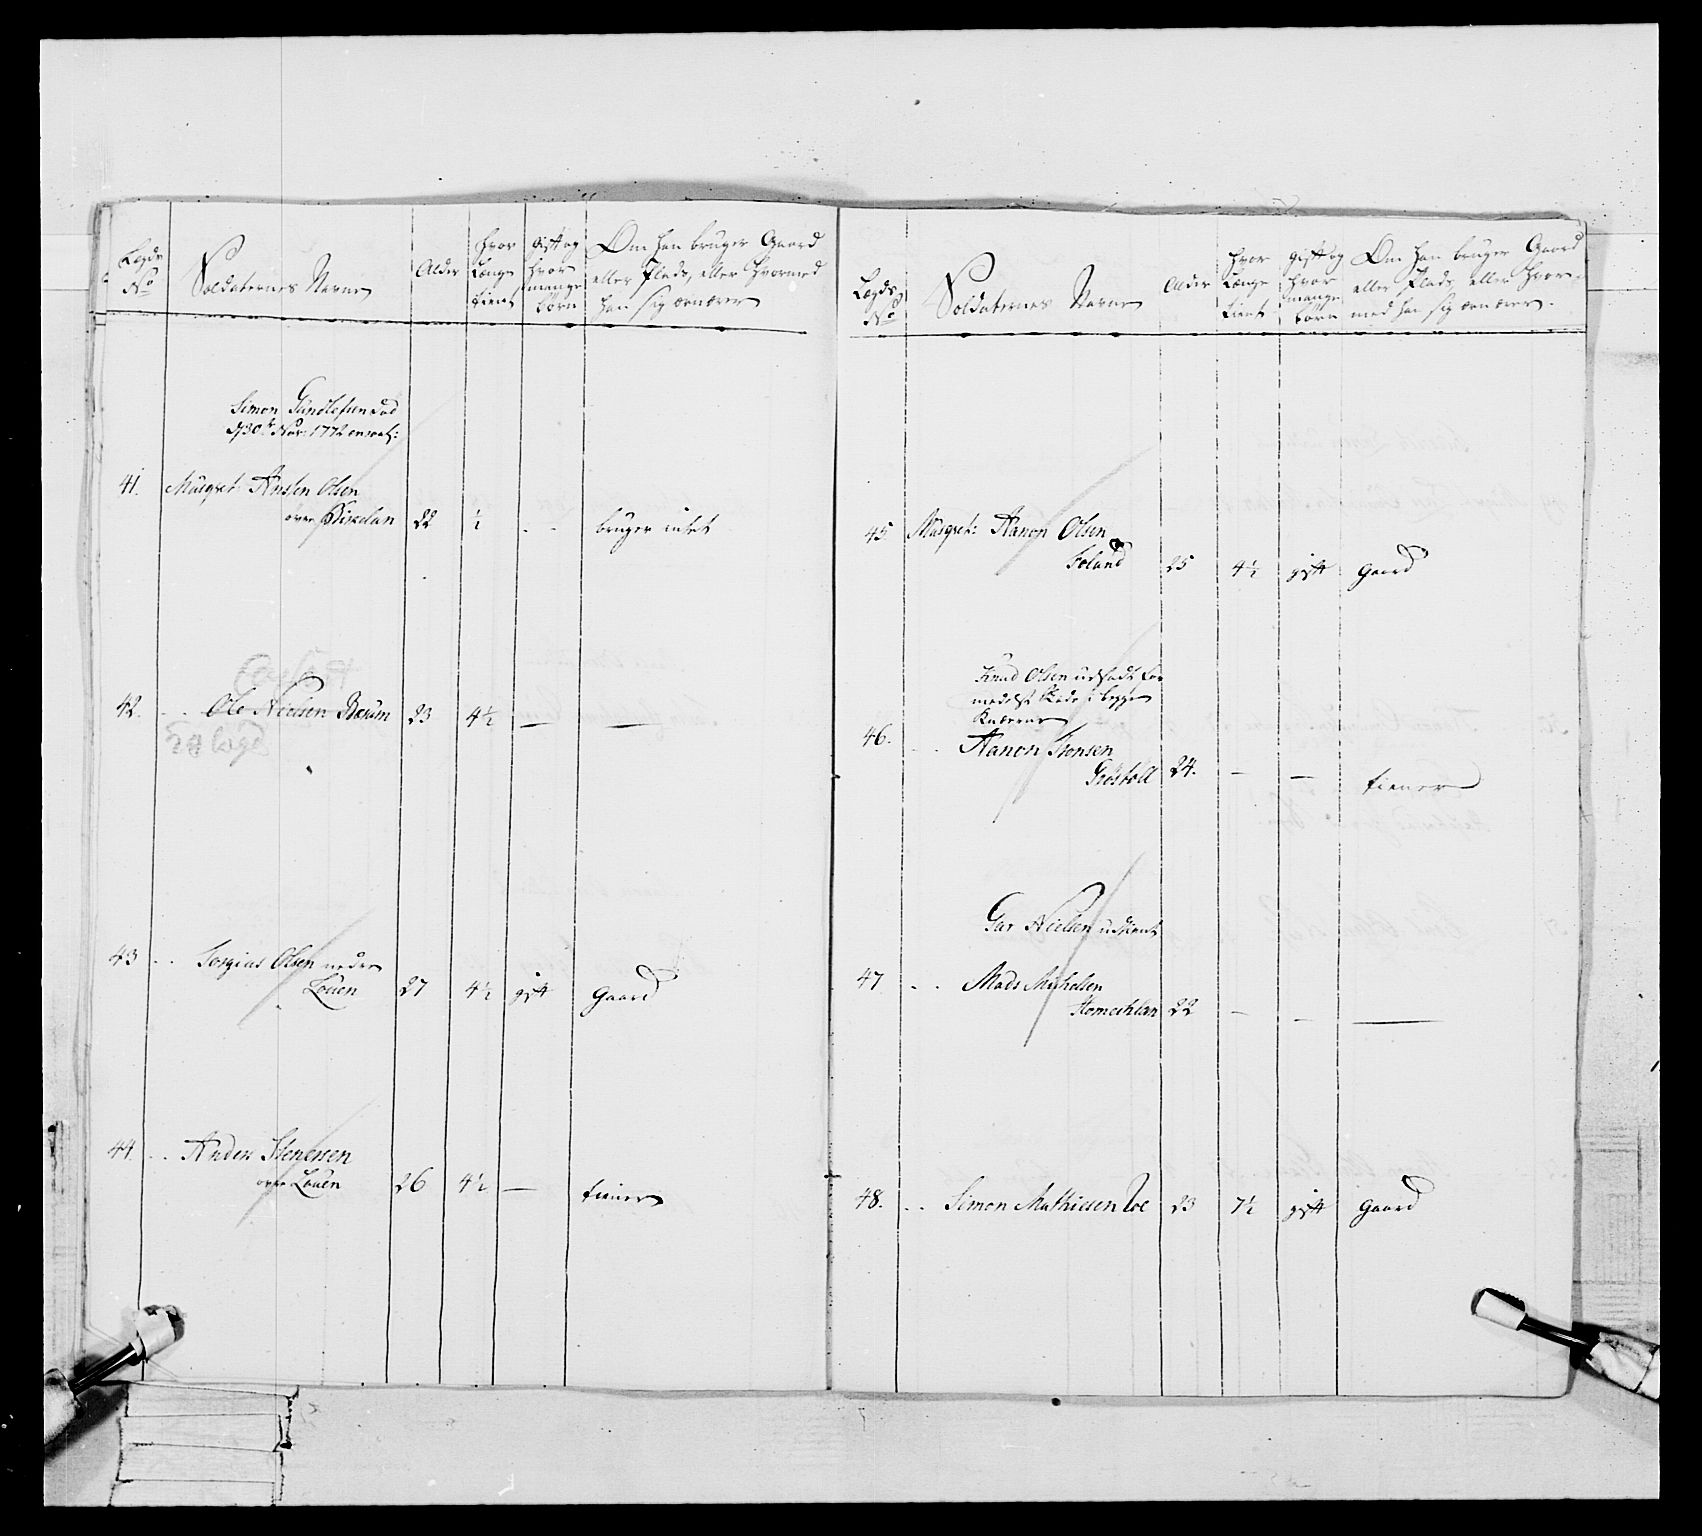 Legds
No
Soldaternes Navne
Alder
hvor
Længe
tient
gift og
hvor
mange
børn
Om han bruger Gaard
eller Plads, eller hvormed
han sig ernærer
Simon Gundlesen død
d 30te Nov: 1772 ansat:
41. Musqvet: Anssen Olsen
over Birkelan 22 ½ - - bruger intet
42. - - Ole Nielsen Berum 23 4½ — —
43 - - Torgius Olsen neder
Louen 27 4½ gift Gaard
44. - - Anders Stenersen
over Louen 26 4½ — tiener
Legds
No
Soldaternes Navne
Alder
hvor
Længe
tient
gift og
hvor
mange
børn
Om han bruger Gaard
eller Plads, eller hvor-
med han sig ernærer.
45. Musqvet: Aanon Olsen
Foland 25 4½ gift Gaard
Knud Olsen udskudt for
medelst skade i begge
Knæerne
46. - - Aanon Stensen
24. — — tiener
Gar Nielsen udtient
47 - - Mads Michelsen
22 — — —
48. - - Simon Mathiesen Toe 23 7½ gift Gaard